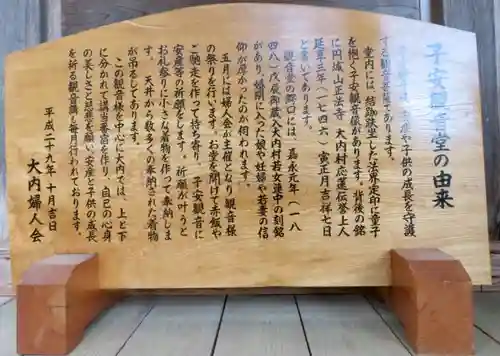 子安観音堂の由来
や子供の成長を守護
する観音菩薩であります。
堂内には、結跏趺坐した法界定印に童子
を抱く子安観音像があります。背後の銘
に円城山正法寺 大内村応蓮伝誉上人
延享三年（一七四六）寅正月吉祥七日
と書いてあります。
観音堂の鰐口には、嘉永元年（一八
四八）戊辰御蔵入大内村若女連中の刻銘
があり、嫁に入った娘や妊婦や若妻の信
仰が厚かったのが伺われます。
五月には婦人会が主催となり観音様
の祭りを行います。お堂を開けて赤飯や
ご馳走を作って持ち寄り、子安観音に
安産等の祈願をします。祈願が叶うと
お礼参りに小さな着物を作って奉納しま
す。天井から数多くの奉納された着物
が吊るしてあります。
この観音様を中心に大内では、上と下
に分かれて講当番宿を作り、自己の心身
の美しさと延寿を願い、安産と子供の成長
を祈る観音講も毎月行われております。
平成二十九年十月吉日
大内婦人会